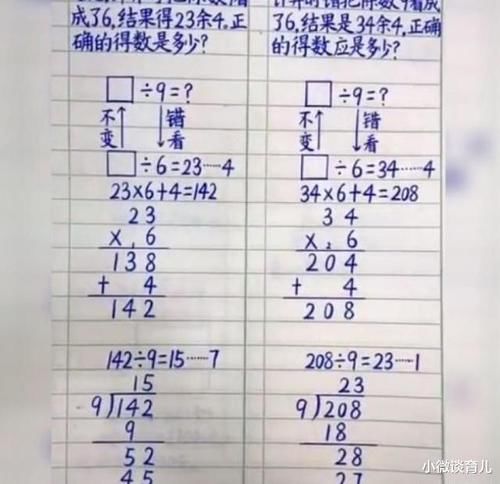 成了6,结果得23余4.正
确的得数是多少?
□÷9=?
不变 错看
□÷6=23……4
23×6+4=142
23
×.6
138
+ 4
142
142÷9=15……7
15
9)142
9
52
45
了6,结果是34余4.正确
的得数应是多少?
□÷9=?
不变 错看
□÷6=34……4
34×6+4=208
34
×.6
204
+ 4
208
208÷9=23……1
23
9)208
18
28
27
小微谈育儿